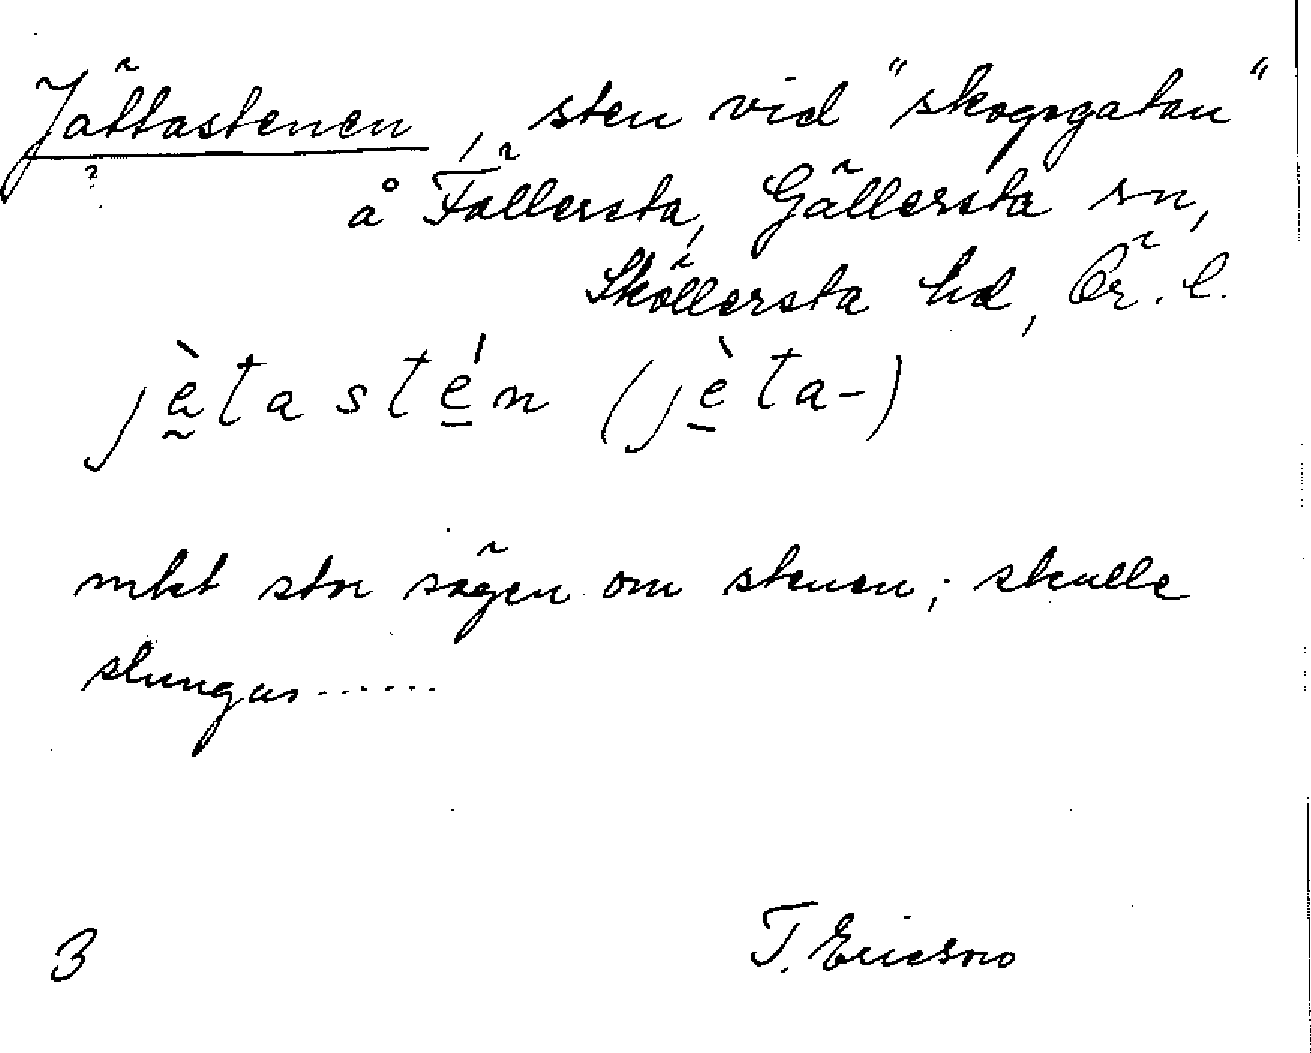 Jättastenen, sten vid "skogsgatan"
?
å Fällersta, Gällersta sn,
Sköllersta hd, Ör. l.
jètastén (jèta-)
mkt stor sägen om stenen; skulle
slungas......
3 T. Ericsno